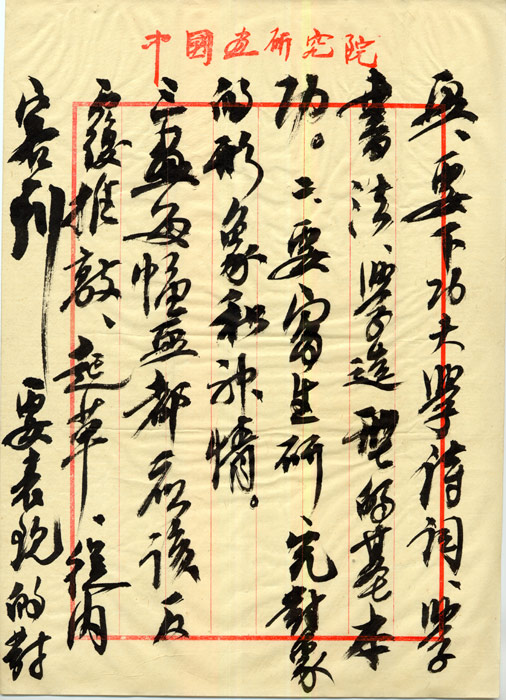 中國畫研究院
典、要下功夫學詩詞、學
書法、學造型的基本
功。二、要寫生研究對象
的形象和神情。
三畫每幅畫都應該反
復推敲、起草、從内
容到 要表現的對